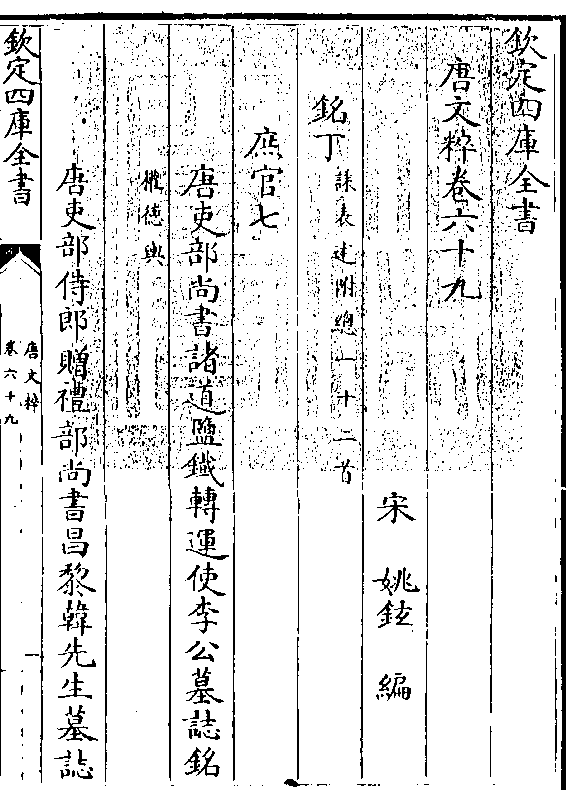 欽定四庫全書
唐文粹卷六十九
宋　姚鉉　編
銘丁
誄表述附總一十二首
庶官七
唐吏部尚書諸道鹽鐵轉運使李公墓誌銘
權德輿
唐吏部侍郎贈禮部尚書昌黎韓先生墓誌
欽定四庫全書
唐文粹
卷六十九
一